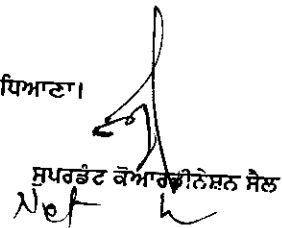 ਧਿਆਣਾ।
ਸੁਪਰਡੰਟ ਕੋਆਰਡੀਨੇਸ਼ਨ ਸੈਲ